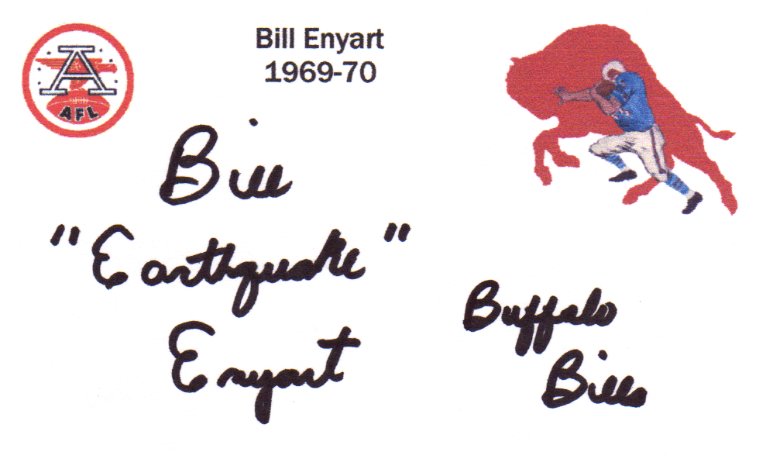 A
AFL
Bill Enyart
1969-70
Bill
"Earthquake"
Enyart
Buffalo
Bills